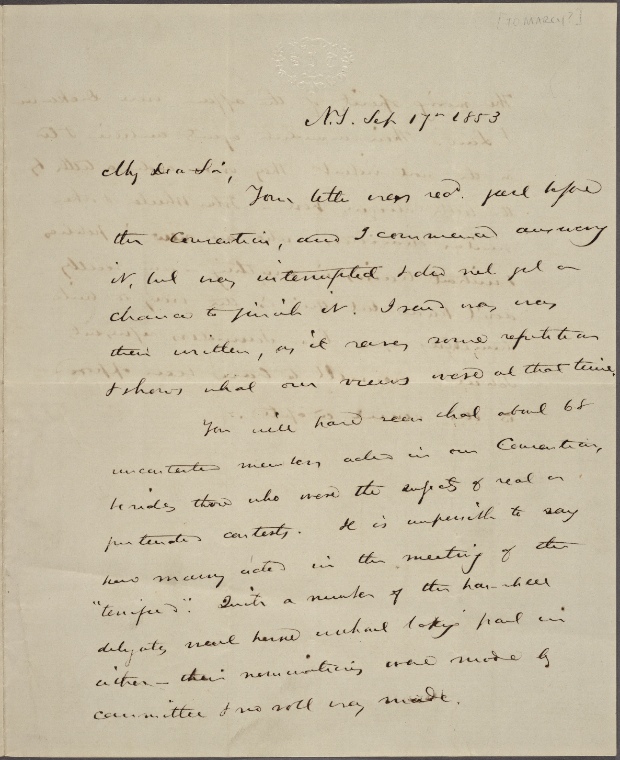 [To Marcy?]
N.Y. Sep 17th 1853
My Dear Sir,
Your letter was recd. just before
the Convention, and I commenced answering
it, but was interrupted & did not get a
chance to finish it. I send was
then written, as it saves some repetition
& shows what our views were at that time.
You will have seen that about 68
uncontested members acted in our Convention,
besides those who were the subjects of real or
pretended contests. It is impossible to say
how many acted in the meeting of the
"terrified". Quite a number of the
delegates went home without taking part in
either - their nominations were made by
committee & no roll was made.